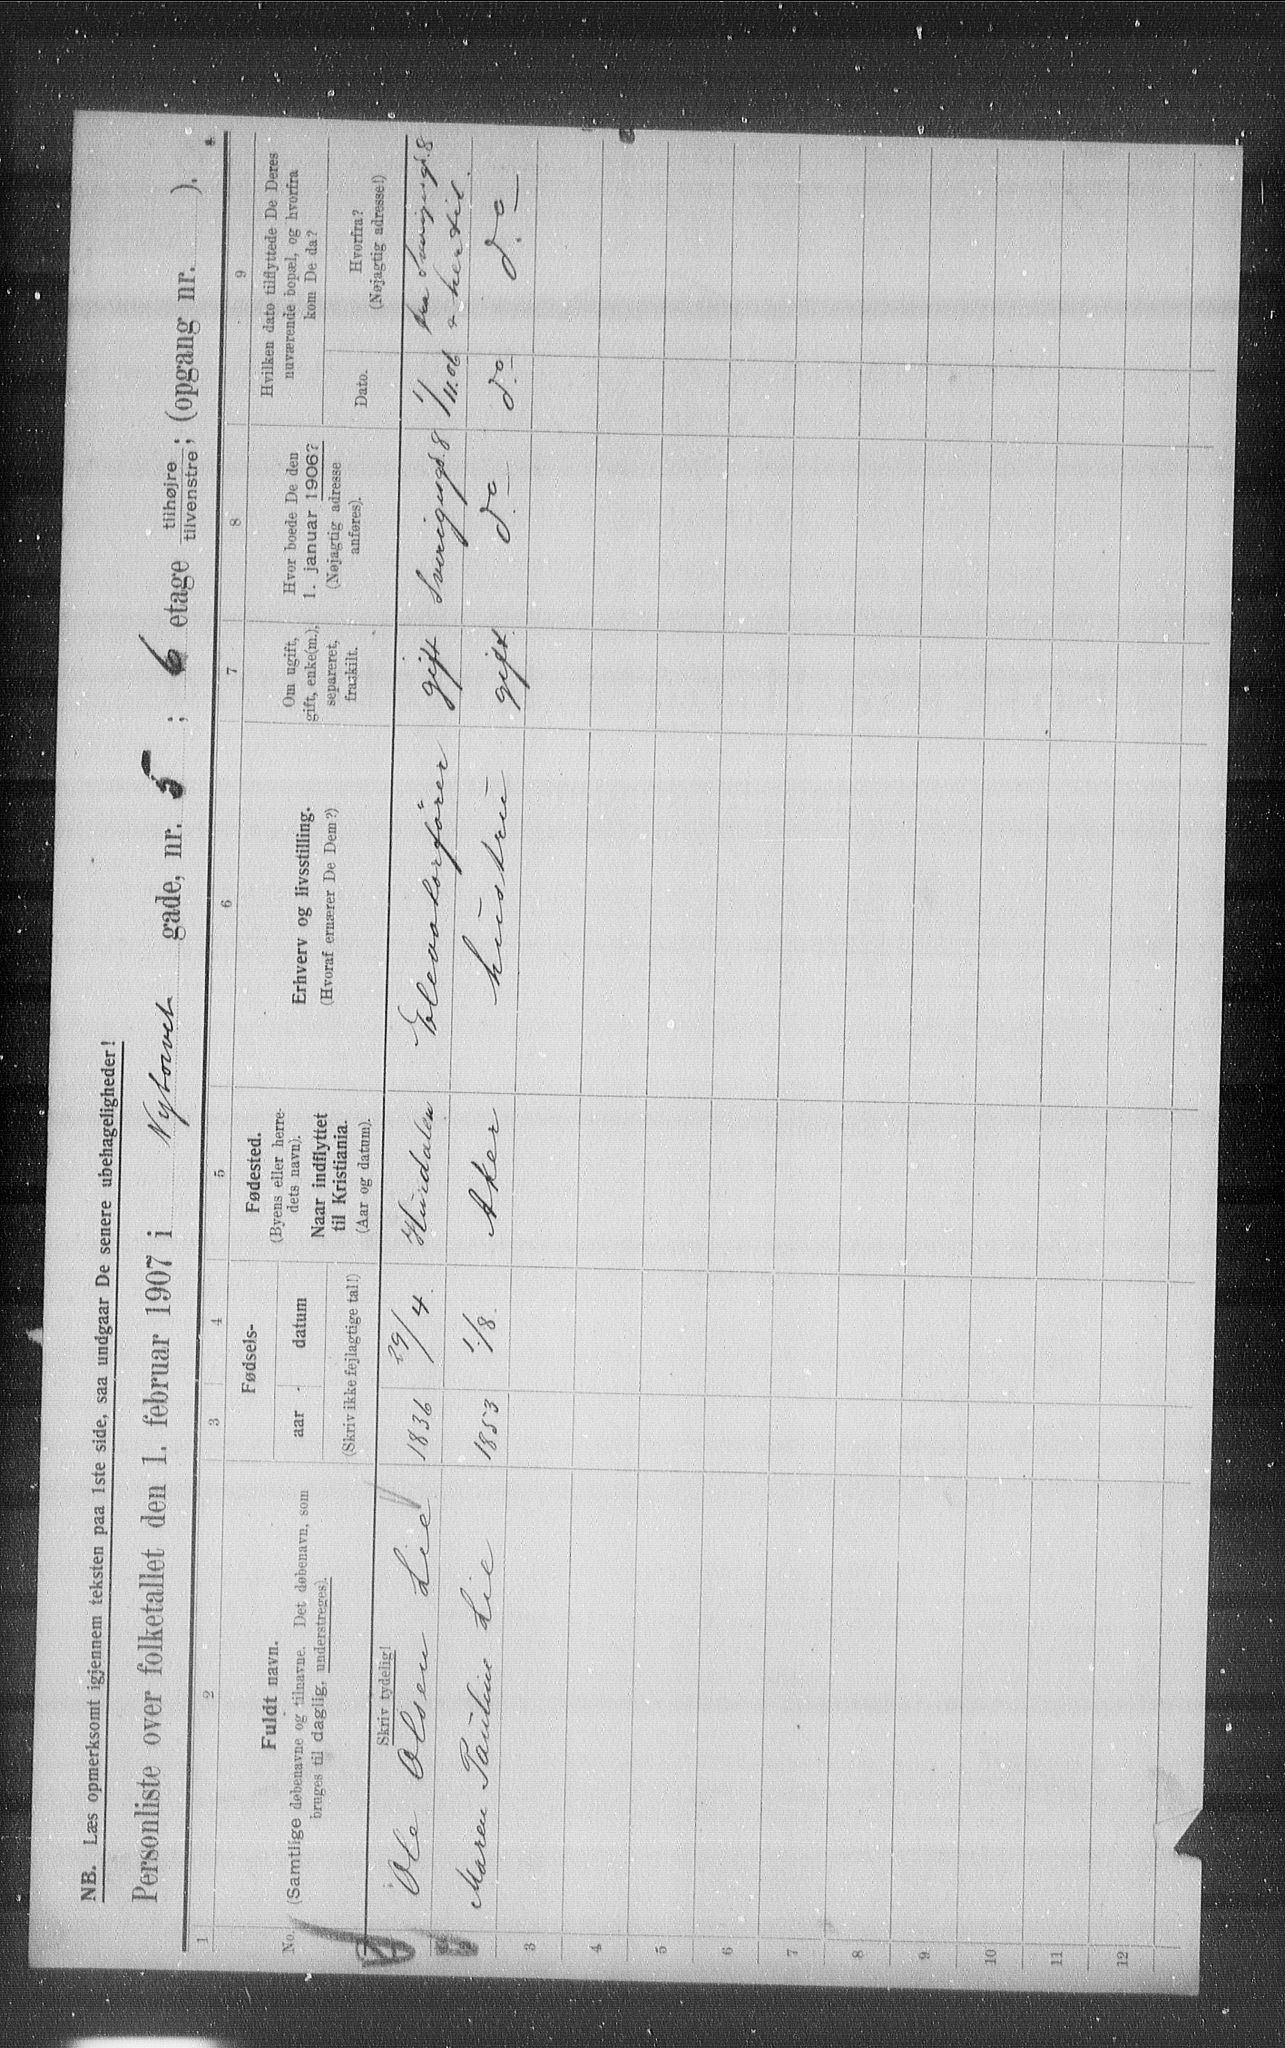 NB. Læs opmerksomt igjennem teksten paa 1ste side, saa undgaar De senere ubehageligheder!
Personliste over folketallet den 1. februar 1907 i Nytorvet gade, nr. 5; 6 etage tilhøjre / tilvenstre; (opgang nr. ).
1 2 3 4 5 6 7 8 9
No.
Fuldt navn.
(Samtlige døbenavne og tilnavne. Det døbenavn, som
bruges til daglig, understreges).
Skriv tydelig!
Fødsels-
aar - datum
(Skriv ikke fejlagtige tal!)
Fødested.
(Byens eller herre-
dets navn).
Naar indflyttet
til Kristiania.
(Aar og datum).
Erhverv og livsstilling.
(Hvoraf ernærer De Dem?)
Om ugift,
gift, enke(m.),
separeret,
fraskilt.
Hvor boede De den
1. januar 1906?
(Nøjagtig adresse
anføres).
Hvilken dato tilflyttede De Deres
nuværende bopæl, og hvorfra
kom De da?
Dato.
Hvorfra?
(Nøjagtig adresse!)
Ole Olsen Lie 1836 29/4. Hurdalen Elevatorfører gift Sverigesgd. 8 1/11.06 fra Sverigesgd. 8
& hertil.
2 Maren Pauline Lie 1853 1/8. Aker hustru gift. do do do
3
4
5
6
7
8
9
10
11
12